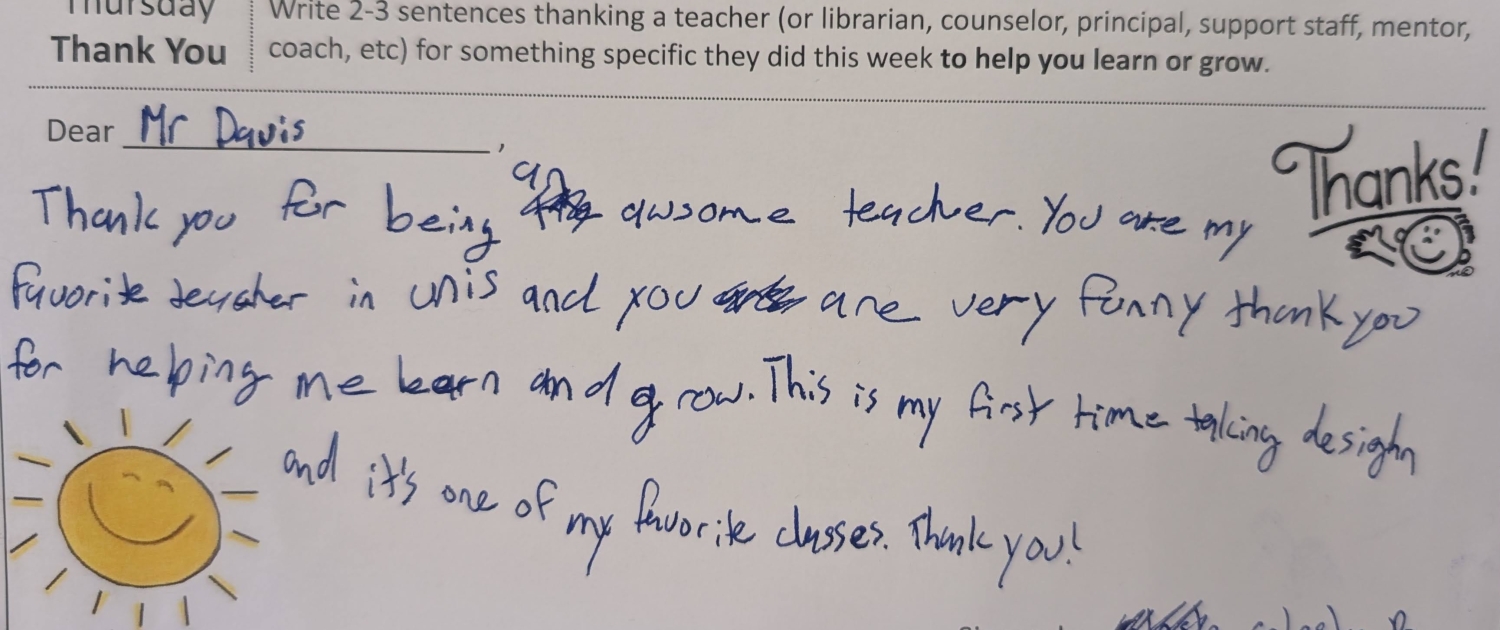 Thursday
Thank You
Write 2-3 sentences thanking a teacher (or librarian, counselor, principal, support staff, mentor,
coach, etc) for something specific they did this week to help you learn or grow.
Dear Mr Davis,
Thanks!
Thank you for being an awsome teacher. You are my
favorite teacher in unis and you are very funny thank you
for helping me learn and grow. This is my first time taking desighn
and it's one of my favorite classes. Thank you!